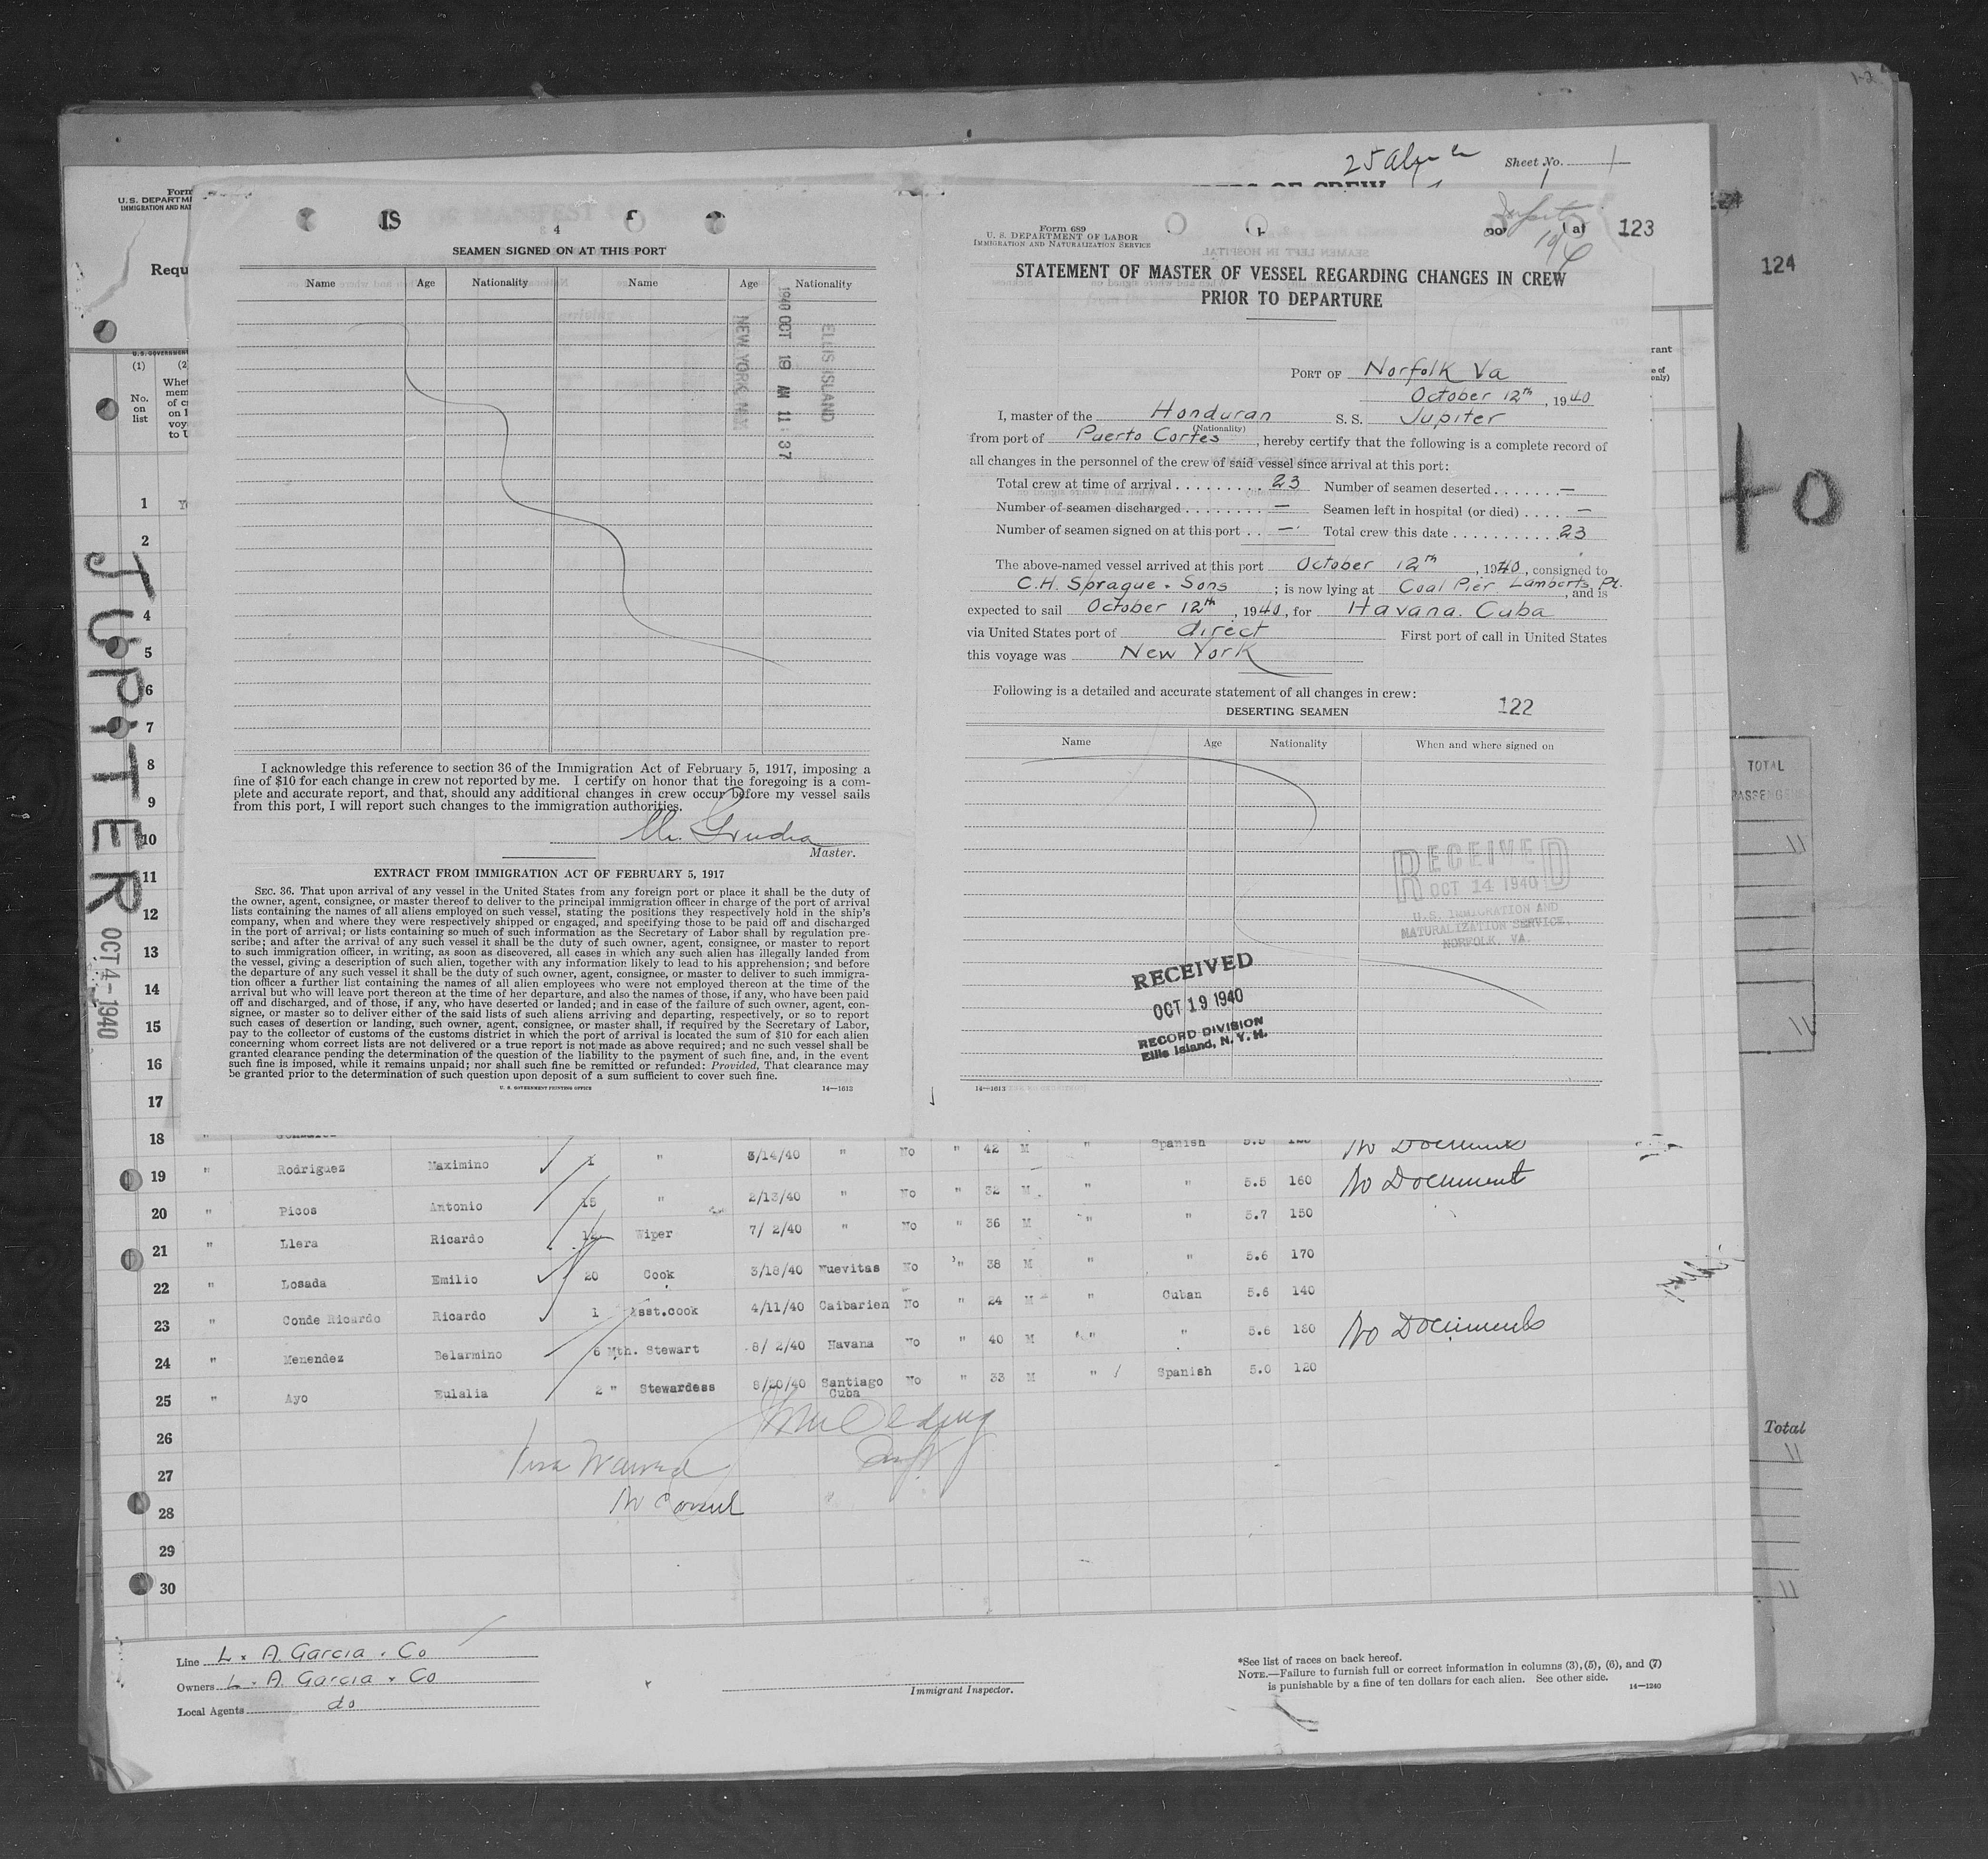 1-2
Sheet No. 1
Form
U.S. DEPARTM
IMMIGRATION AND NAT
Requ
U.S. GOVERNMENT
(1)
(2)
No.
on
list
Whet
mem
of c
on l
voy
to U
JUPITER
OCT 4-1940
4
SEAMEN SIGNED ON AT THIS PORT
Name Age Nationality Name Age Nationality
ELLIS ISLAND
1940 OCT 19 AM 11:37
NEW YORK, N.Y.
I acknowledge this reference to section 36 of the Immigration Act of February 5, 1917, imposing a
fine of $10 for each change in crew not reported by me. I certify on honor that the foregoing is a com-
plete and accurate report, and that, should any additional changes in crew occur before my vessel sails
from this port, I will report such changes to the immigration authorities.
Master.
EXTRACT FROM IMMIGRATION ACT OF FEBRUARY 5, 1917
SEC. 36. That upon arrival of any vessel in the United States from any foreign port or place it shall be the duty of
the owner, agent, consignee, or master thereof to deliver to the principal immigration officer in charge of the port of arrival
lists containing the names of all aliens employed on such vessel, stating the positions they respectively hold in the ship's
company, when and where they were respectively shipped or engaged, and specifying those to be paid off and discharged
in the port of arrival; or lists containing so much of such information as the Secretary of Labor shall by regulation pre-
scribe; and after the arrival of any such vessel it shall be the duty of such owner, agent, consignee, or master to report
to such immigration officer, in writing, as soon as discovered, all cases in which any such alien has illegally landed from
the vessel, giving a description of such alien, together with any information likely to lead to his apprehension; and before
the departure of any such vessel it shall be the duty of such owner, agent, consignee, or master to deliver to such immigra-
tion officer a further list containing the names of all alien employees who were not employed thereon at the time of the
arrival but who will leave port thereon at the time of her departure, and also the names of those, if any, who have been paid
off and discharged, and of those, if any, who have deserted or landed; and in case of the failure of such owner, agent, con-
signee, or master so to deliver either of the said lists of such aliens arriving and departing, respectively, or so to report
such cases of desertion or landing, such owner, agent, consignee, or master shall, if required by the Secretary of Labor,
pay to the collector of customs of the customs district in which the port of arrival is located the sum of $10 for each alien
concerning whom correct lists are not delivered or a true report is not made as above required; and no such vessel shall be
granted clearance pending the determination of the question of the liability to the payment of such fine, and, in the event
such fine is imposed, while it remains unpaid; nor shall such fine be remitted or refunded: Provided, That clearance may
be granted prior to the determination of such question upon deposit of a sum sufficient to cover such fine.
U. S. GOVERNMENT PRINTING OFFICE 14—1613
Form 689
U. S. DEPARTMENT OF LABOR
IMMIGRATION AND NATURALIZATION SERVICE
123
124
STATEMENT OF MASTER OF VESSEL REGARDING CHANGES IN CREW
PRIOR TO DEPARTURE
PORT OF Norfolk Va
October 12th, 1940
I, master of the Honduran S. S. Jupiter
(Nationality)
from port of Puerto Cortes, hereby certify that the following is a complete record of
all changes in the personnel of the crew of said vessel since arrival at this port:
Total crew at time of arrival ........ 23 Number of seamen deserted ....... —
Number of seamen discharged ........ — Seamen left in hospital (or died) .... —
Number of seamen signed on at this port .. — Total crew this date ........... 23
The above-named vessel arrived at this port October 12th, 1940, consigned to
C.H. Sprague & Sons; is now lying at Coal Pier Lamberts Pt., and is
expected to sail October 12th, 1940, for Havana. Cuba
via United States port of direct First port of call in United States
this voyage was New York
Following is a detailed and accurate statement of all changes in crew:
DESERTING SEAMEN 122
Name Age Nationality When and where signed on
RECEIVED
OCT 14 1940
U.S. IMMIGRATION AND
NATURALIZATION SERVICE,
NORFOLK, VA.
RECEIVED
OCT 19 1940
RECORD DIVISION
Ellis Island, N. Y. H.
14—1613
rant
only)
40
TOTAL
PASSENGERS
11
11
1
2
4
5
6
7
8
9
10
11
12
13
14
15
16
17
18 " 3/14/40 " No " 42 M " Spanish 5.5 No Document
19 " Rodriguez Maximino 1 " 2/13/40 " No " 32 M " " 5.5 160 No Document
20 " Picos Antonio 15 " 7/ 2/40 " No " 36 M " " 5.7 150
21 " Llera Ricardo Wiper
22 " Losada Emilio 20 Cook 3/18/40 Nuevitas No " 38 M " " 5.6 170
23 " Conde Ricardo Ricardo 1 Asst.cook 4/11/40 Caibarien No " 24 M " Cuban 5.6 140
24 " Menendez Belarmino 6 Mth. Stewart 8/ 2/40 Havana No " 40 M " " 5.6 180 No Documents
25 " Ayo Eulalia 2 " Stewardess 8/20/40 Santiago Cuba No " 33 M " Spanish 5.0 120
26
27
28 No Consul
29
30
Total
11
11
Line L. A. Garcia & Co
Owners L. A. Garcia & Co
Local Agents do
Immigrant Inspector.
*See list of races on back hereof.
NOTE.—Failure to furnish full or correct information in columns (3), (5), (6), and (7)
is punishable by a fine of ten dollars for each alien. See other side. 14—1240